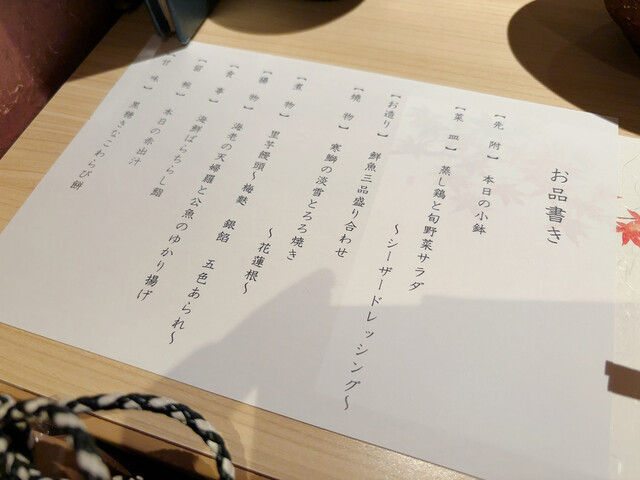 お品書き
【先 附】 本日の小鉢
【菜 皿】 蒸し鶏と旬野菜サラダ
～シーザードレッシング～
【お造り】 鮮魚三品盛り合わせ
【焼 物】 寒鰤の淡雪とろろ焼き
【煮 物】 里芋饅頭～梅麩 銀餡 ～花蓮根～
五色あられ～
【揚 物】 海老の天婦羅と公魚のゆかり揚げ
【食 事】 海鮮ばらちらし鮨
【留 椀】 本日の赤出汁
【甘 味】 黒糖きなこわらび餅